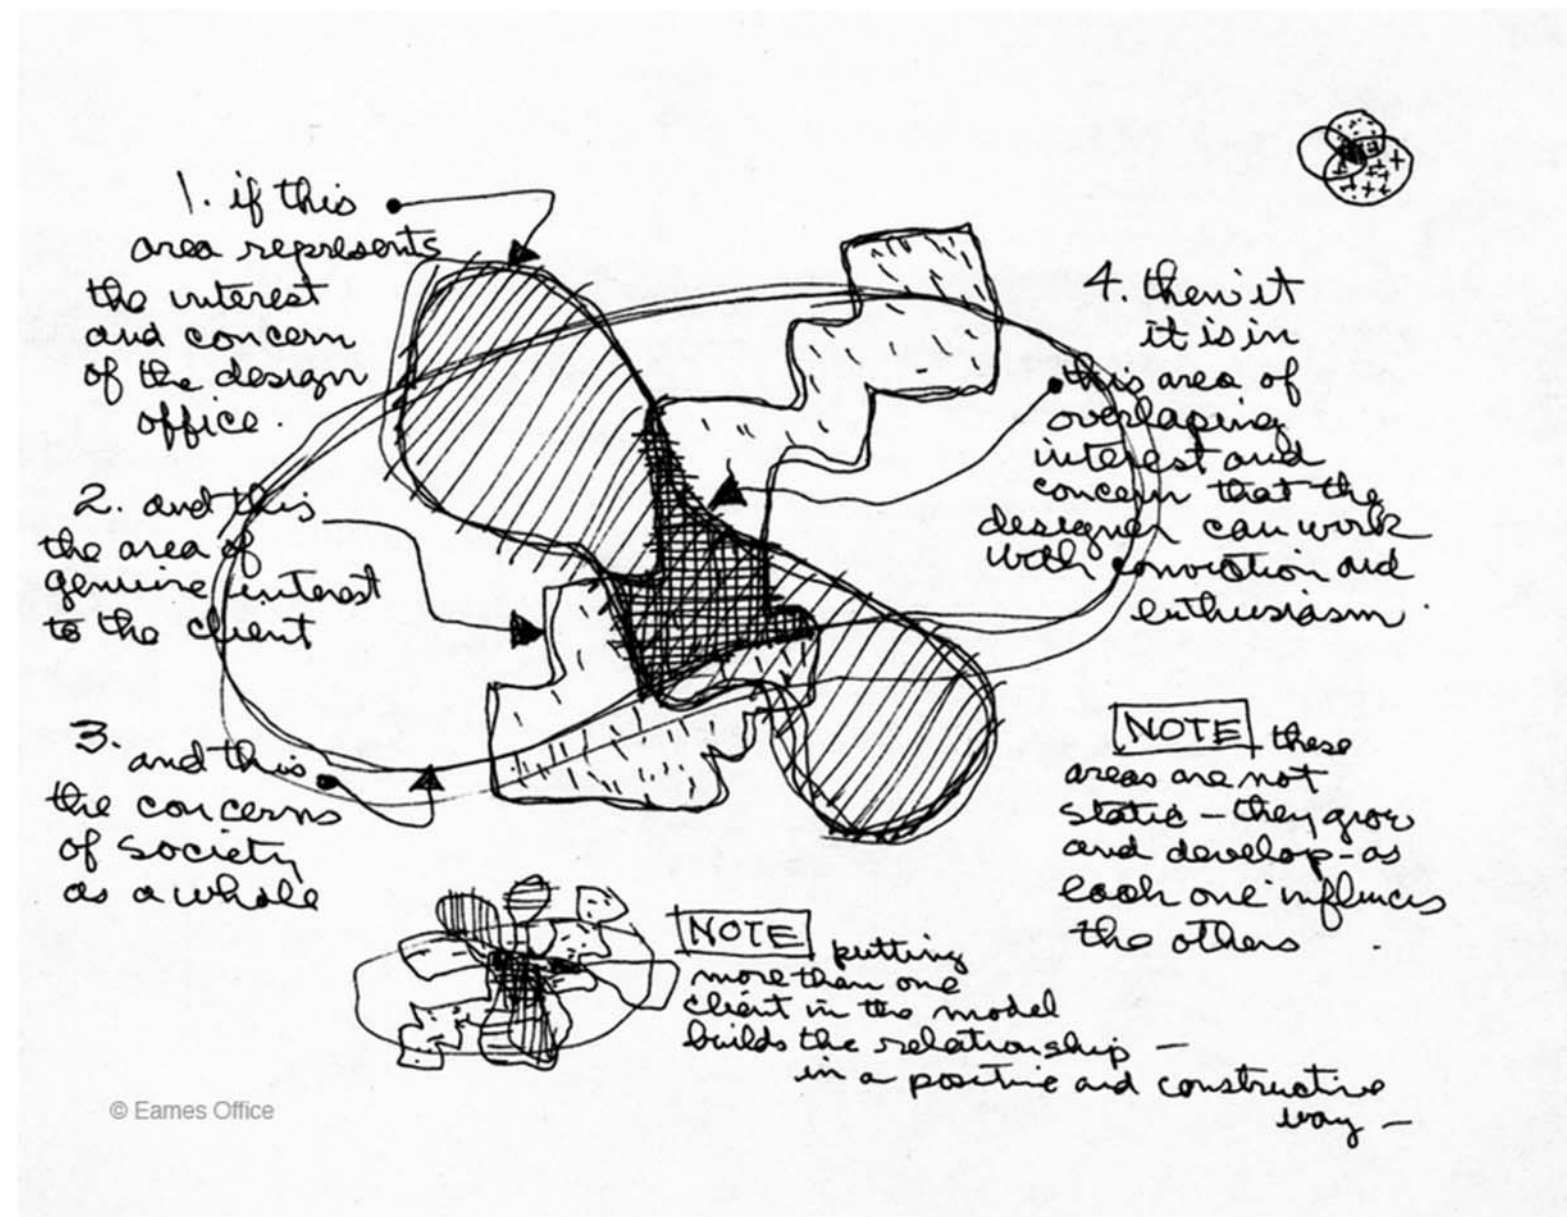 1. if this
area represents
the interest
and concern
of the design
office.
2. and this
the area of
genuine interest
to the client
3. and this
the concerns
of society
as a whole
4. then it
it is in
this area of
overlaping
interest and
concern that the
designer can work
with conviction and
enthusiasm.
NOTE these
areas are not
static – they grow
and develop – as
each one influences
the others
NOTE putting
more than one
client in the model
builds the relationship –
in a positive and constructive
way –
© Eames Office